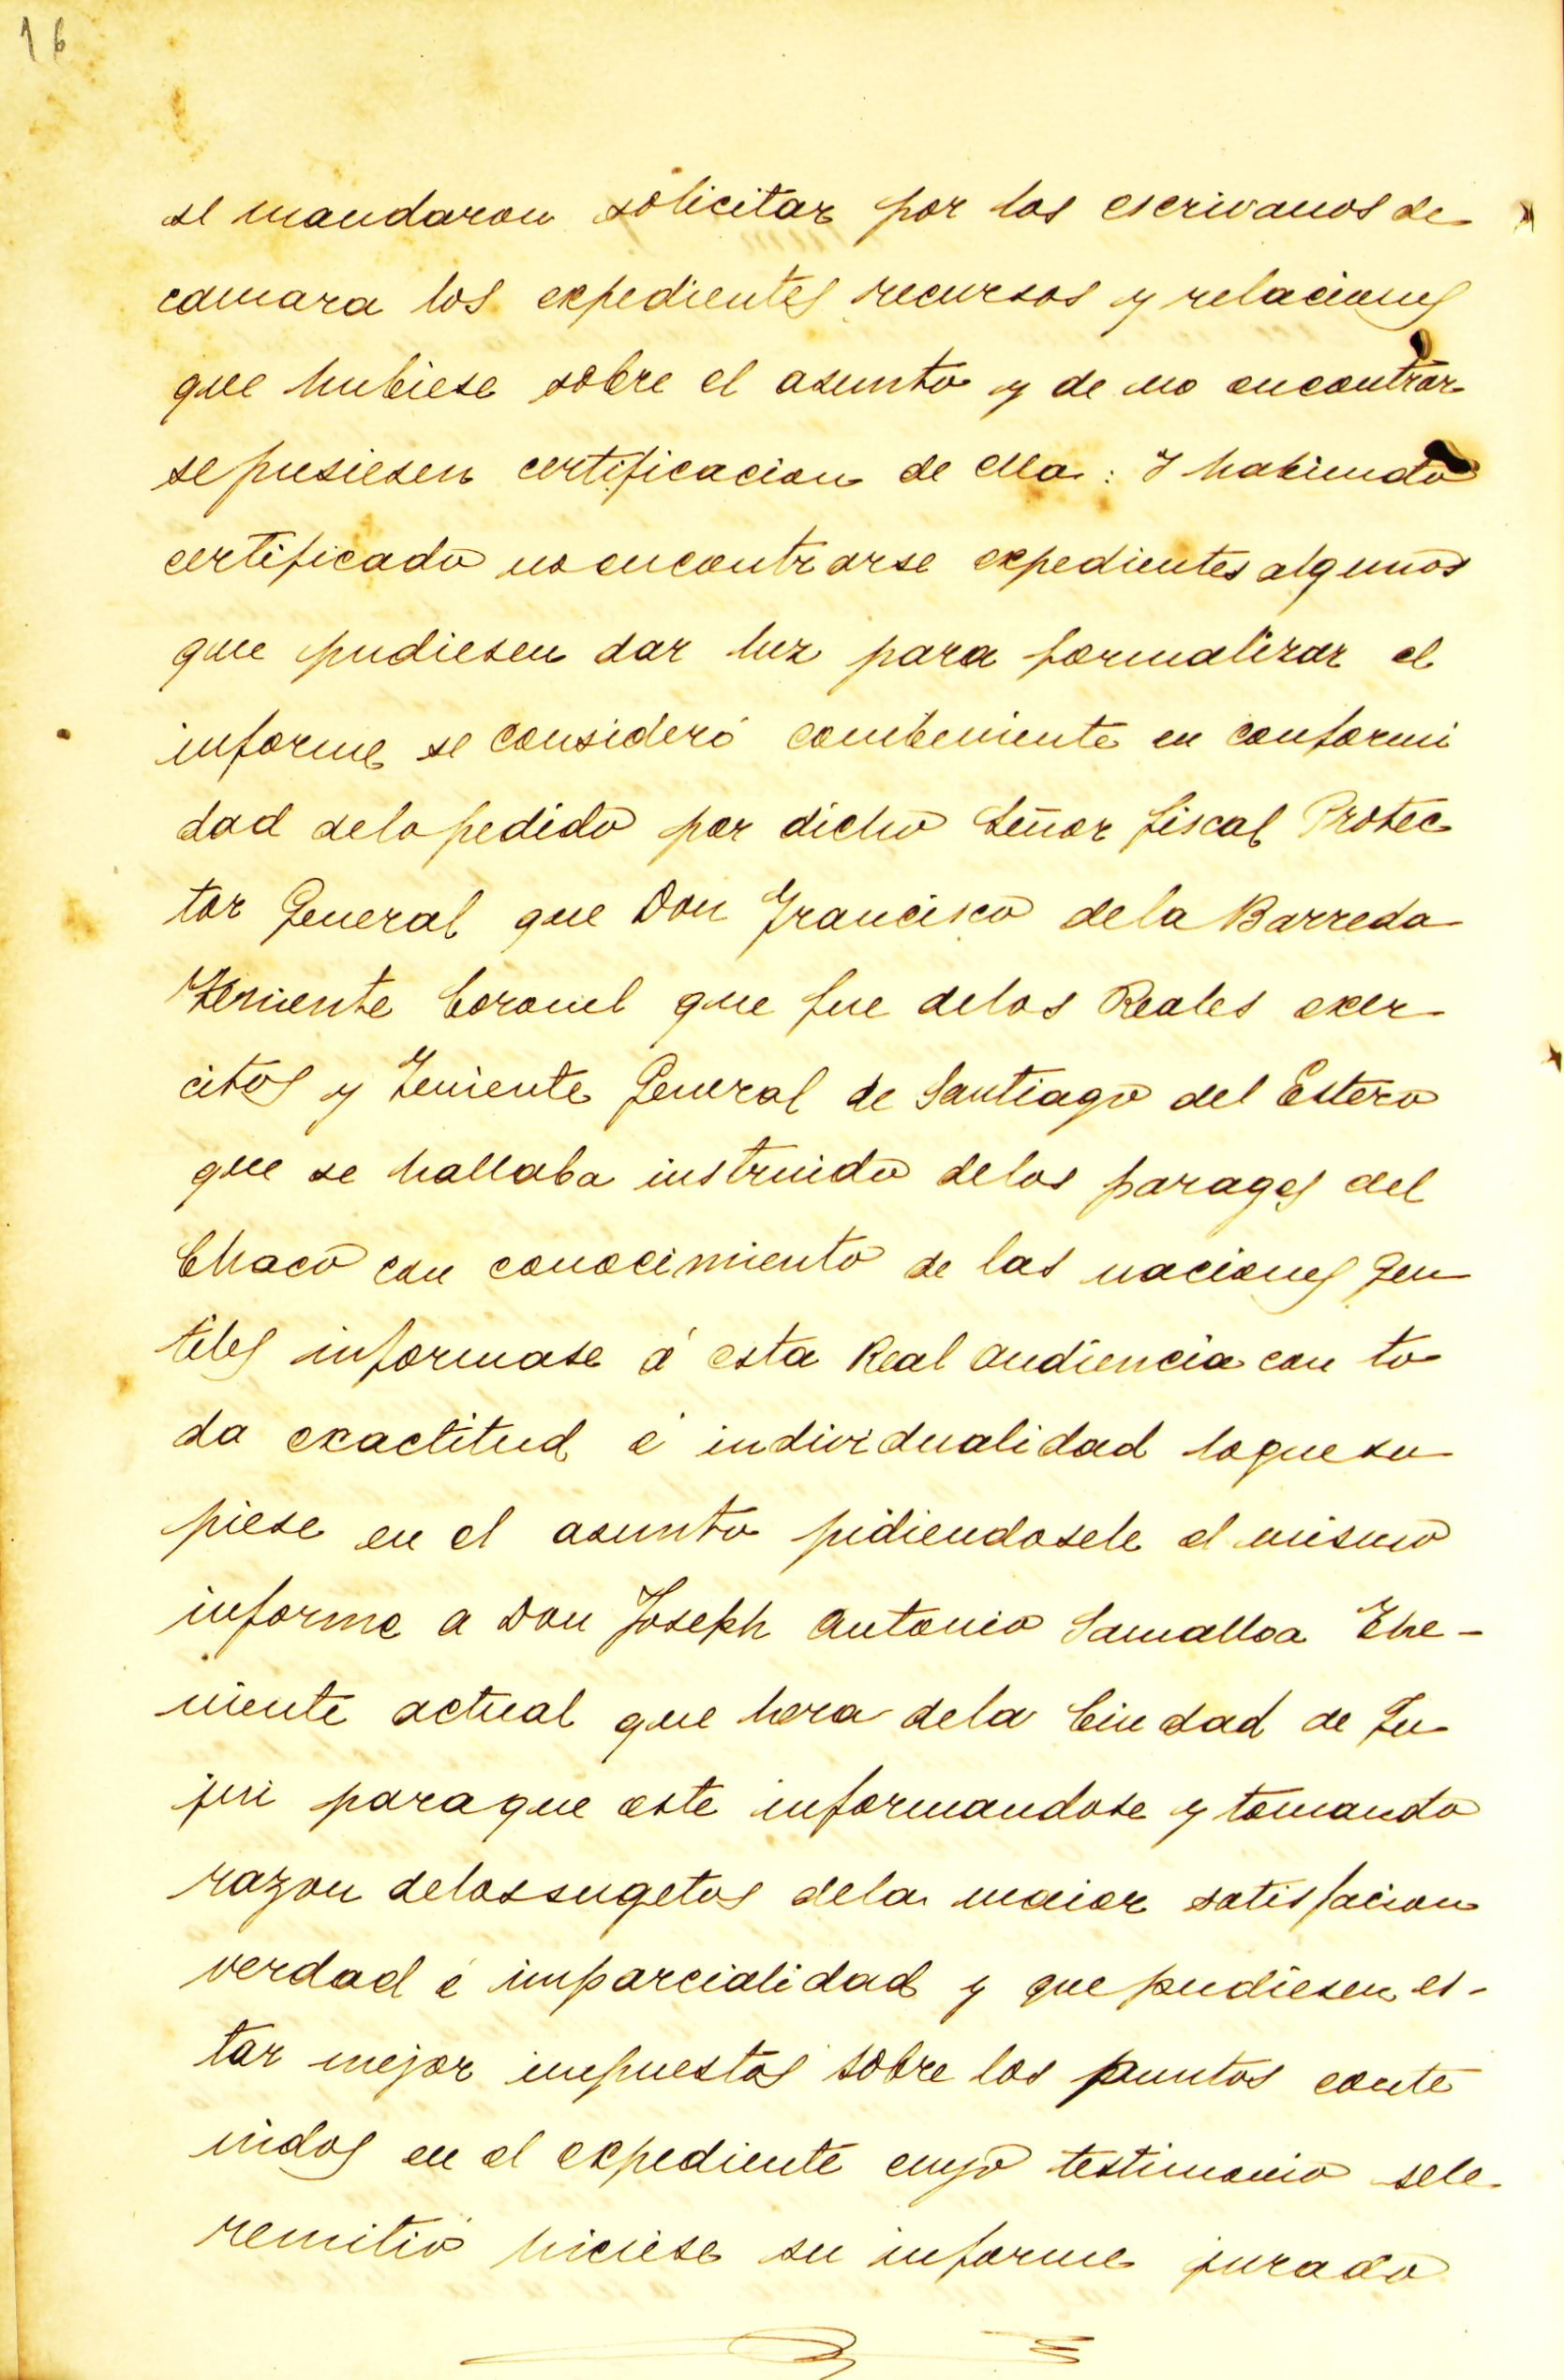 16
se mandaron solicitar por los escrivanos de
camara los expedientes recursos y relaciones
que hubiese sobre el asunto y de no encontrar
se pusiesen certificacion de ella: Y habiendo
certificado no encontrarse expedientes algunos
que pudiesen dar luz para formalizar el
informe se consideró combeniente en conformi
dad delo pedido por dicho Señor fiscal Protec
tor General que Don Francisco dela Barreda
Theniente Coronel que fue delos Reales exer
citos y Teniente General de Santiago del Estero
que se hallaba instruido delos parages del
Chaco con conocimiento de las naciones Gen
tiles informase á esta Real audiencia con to
da exactitud é individualidad loque su
piese en el asunto pidiendosele el mismo
informe a Don Joseph Antonio Samalloa The-
niente actual que hera dela Ciudad de Ju
jui paraque este informandose y tomando
razon delossugetos dela maior satisfacion
verdad é imparcialidad y que pudiesen es-
tar mejor impuestos sobre los puntos conte
nidos en el expediente cuyo testimonio sele
remitió hiciese su informe jurado